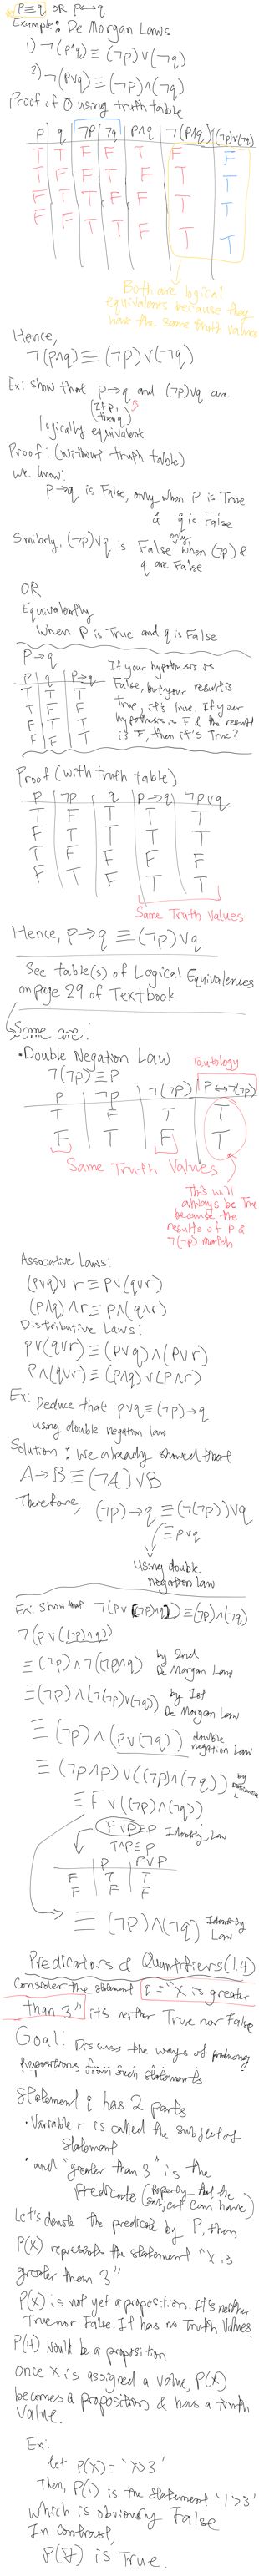 P≡q OR p↔q
Example: De Morgan Laws
1) ¬(p∧q) ≡ (¬p)∨(¬q)
2) ¬(p∨q) ≡ (¬p)∧(¬q)
Proof of ① using truth table
p q ¬p ¬q p∧q ¬(p∧q) (¬p)∨(¬q)
T T F F T F F
T F F T F T T
F T T F F T T
F F T T F T T
Both are logical
equivalents because they
have the same truth values
Hence,
¬(p∧q) ≡ (¬p)∨(¬q)
Ex: show that p→q and (¬p)∨q are
(If p, then q)
logically equivalent
Proof: (without truth table)
we know:
p→q is False, only when p is True
& q is False
Similarly, (¬p)∨q is False only when (¬p) &
q are False
OR
Equivalently
when p is True and q is False
P→q
P q P→q
T T T
T F F
F T T
F F T
If your hypothesis is
False, but your result is
true, it's true. If your
hypothesis is F & the result
is F, then it's True?
Proof (with truth table)
P ¬P q P→q ¬P∨q
T F T T T
F T T T T
T F F F F
F T F T T
Same Truth Values
Hence, p→q ≡ (¬p)∨q
See table(s) of Logical Equivalences
on page 29 of Textbook
Some are:
• Double Negation Law
¬(¬p) ≡ P
Tautology
P ¬P ¬(¬P) P↔¬(¬P)
T F T T
F T F T
Same Truth Values
This will
always be True
because the
results of P &
¬(¬P) match
Assocative Laws:
(p∨q)∨r ≡ p∨(q∨r)
(p∧q)∧r ≡ p∧(q∧r)
Distributive Laws:
p∨(q∨r) ≡ (p∨q)∧(p∨r)
P∧(q∨r) ≡ (p∧q)∨(p∧r)
Ex: Deduce that p∨q ≡ (¬p)→q
using double negation law
Solution: We already showed that
A→B ≡ (¬A)∨B
Therefore, (¬p)→q ≡ (¬(¬p))∨q
≡ p∨q
using double
negation law
Ex: Show that ¬(p∨((¬p)∧q)) ≡ (¬p)∧(¬q)
¬(p∨((¬p)∧q))
≡ (¬p)∧¬((¬p)∧q) by 2nd
De Morgan Law
≡ (¬p)∧(¬(¬p)∨(¬q)) by 1st
De Morgan Law
≡ (¬p)∧(p∨(¬q)) double
negation Law
≡ (¬p∧p)∨((¬p)∧(¬q)) by
≡ F∨((¬p)∧(¬q))
F∨P≡P Identity Law
T∧P≡P
P F∨P
F T T
F F F
≡ (¬p)∧(¬q) Identity
Law
Predicators & Quantifiers (1.4)
Consider the statement q = "X is greater
than 3" it's neither True nor False
Goal: Discuss the ways of producing
propositions from such statements
Statement q has 2 parts
• Variable x is called the subject of
statement
• and "greater than 3" is the
predicate (property that the
subject can have)
Let's denote the predicate by P, then
P(X) represents the statement "X is
greater than 3"
P(X) is not yet a proposition. It's neither
True nor False. It has no Truth Values
P(4) would be a propsition
once X is assigned a value, P(X)
becomes a proposition & has a truth
value.
Ex:
let P(X) = 'X>3'
Then, P(1) is the statement '1>3'
which is obviously False
In contrast,
P(7) is True.